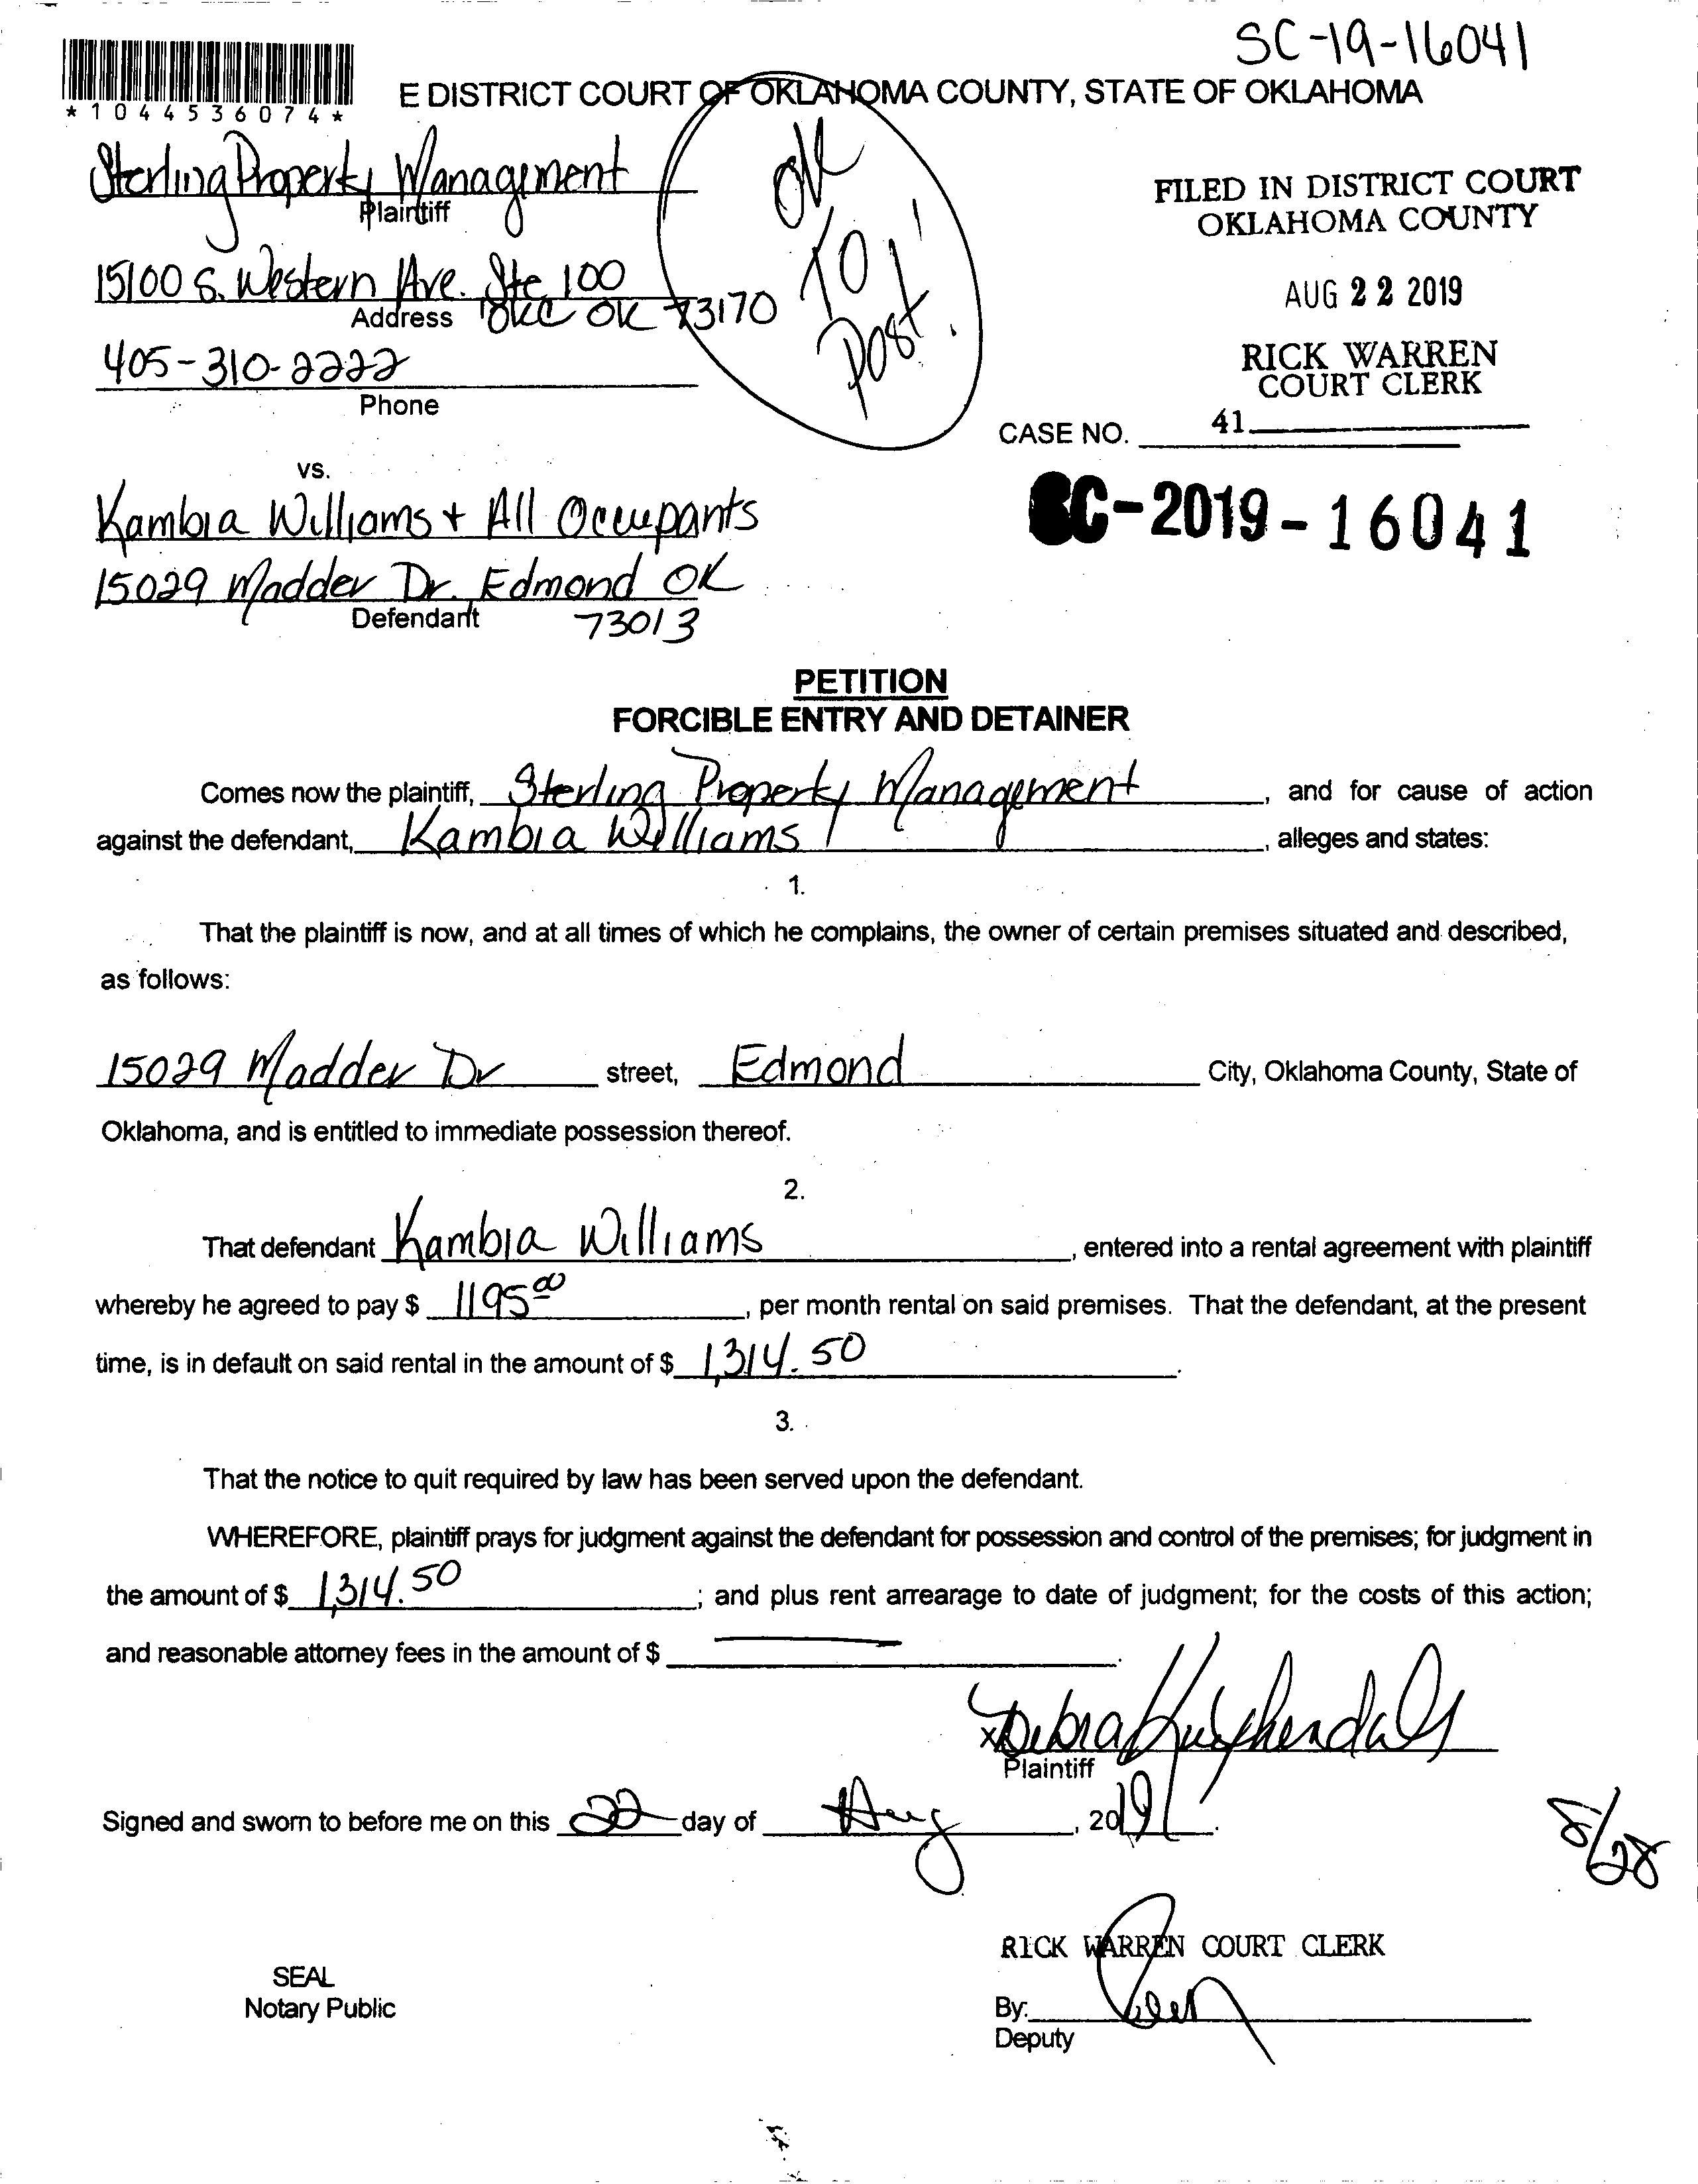 SC-19-16041
*1044536074*
E DISTRICT COURT OF OKLAHOMA COUNTY, STATE OF OKLAHOMA
Sterling Property Management
Plaintiff
OK
TO
Post!
FILED IN DISTRICT COURT
OKLAHOMA COUNTY
15100 S. Western Ave. Ste 100
Address OKC OK 73170
AUG 22 2019
405-310-2222
Phone
RICK WARREN
COURT CLERK
CASE NO. 41
vs.
Kambia Williams + All Occupants
SC-2019-16041
15029 Madder Dr. Edmond OK
Defendant 73013
PETITION
FORCIBLE ENTRY AND DETAINER
Comes now the plaintiff, Sterling Property Management, and for cause of action
against the defendant, Kambia Williams, alleges and states:
1.
That the plaintiff is now, and at all times of which he complains, the owner of certain premises situated and described,
as follows:
15029 Madder Dr street, Edmond City, Oklahoma County, State of
Oklahoma, and is entitled to immediate possession thereof.
2.
That defendant Kambia Williams, entered into a rental agreement with plaintiff
whereby he agreed to pay $ 1195.00, per month rental on said premises. That the defendant, at the present
time, is in default on said rental in the amount of $ 1,314.50.
3.
That the notice to quit required by law has been served upon the defendant.
WHEREFORE, plaintiff prays for judgment against the defendant for possession and control of the premises; for judgment in
the amount of $ 1,314.50; and plus rent arrearage to date of judgment; for the costs of this action;
and reasonable attorney fees in the amount of $
x Debra
Plaintiff
Signed and sworn to before me on this 22 day of Aug, 2019.
8/28
RICK WARREN COURT CLERK
SEAL
Notary Public
By:
Deputy